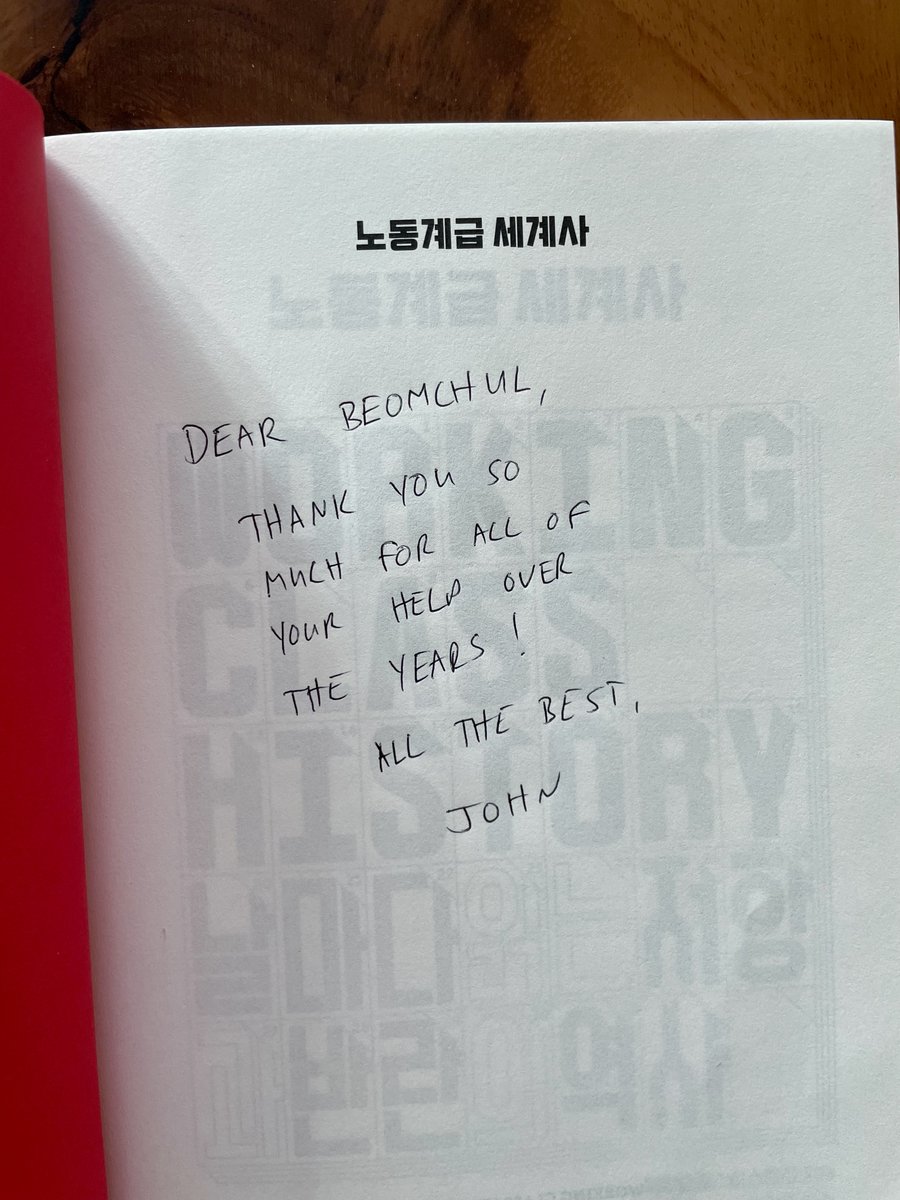 노동계급 세계사
노동계급 세계사
DEAR BEOMCHUL,
THANK YOU SO
MUCH FOR ALL OF
YOUR HELP OVER
THE YEARS!
ALL THE BEST,
JOHN
WORKING
CLASS
HISTORY